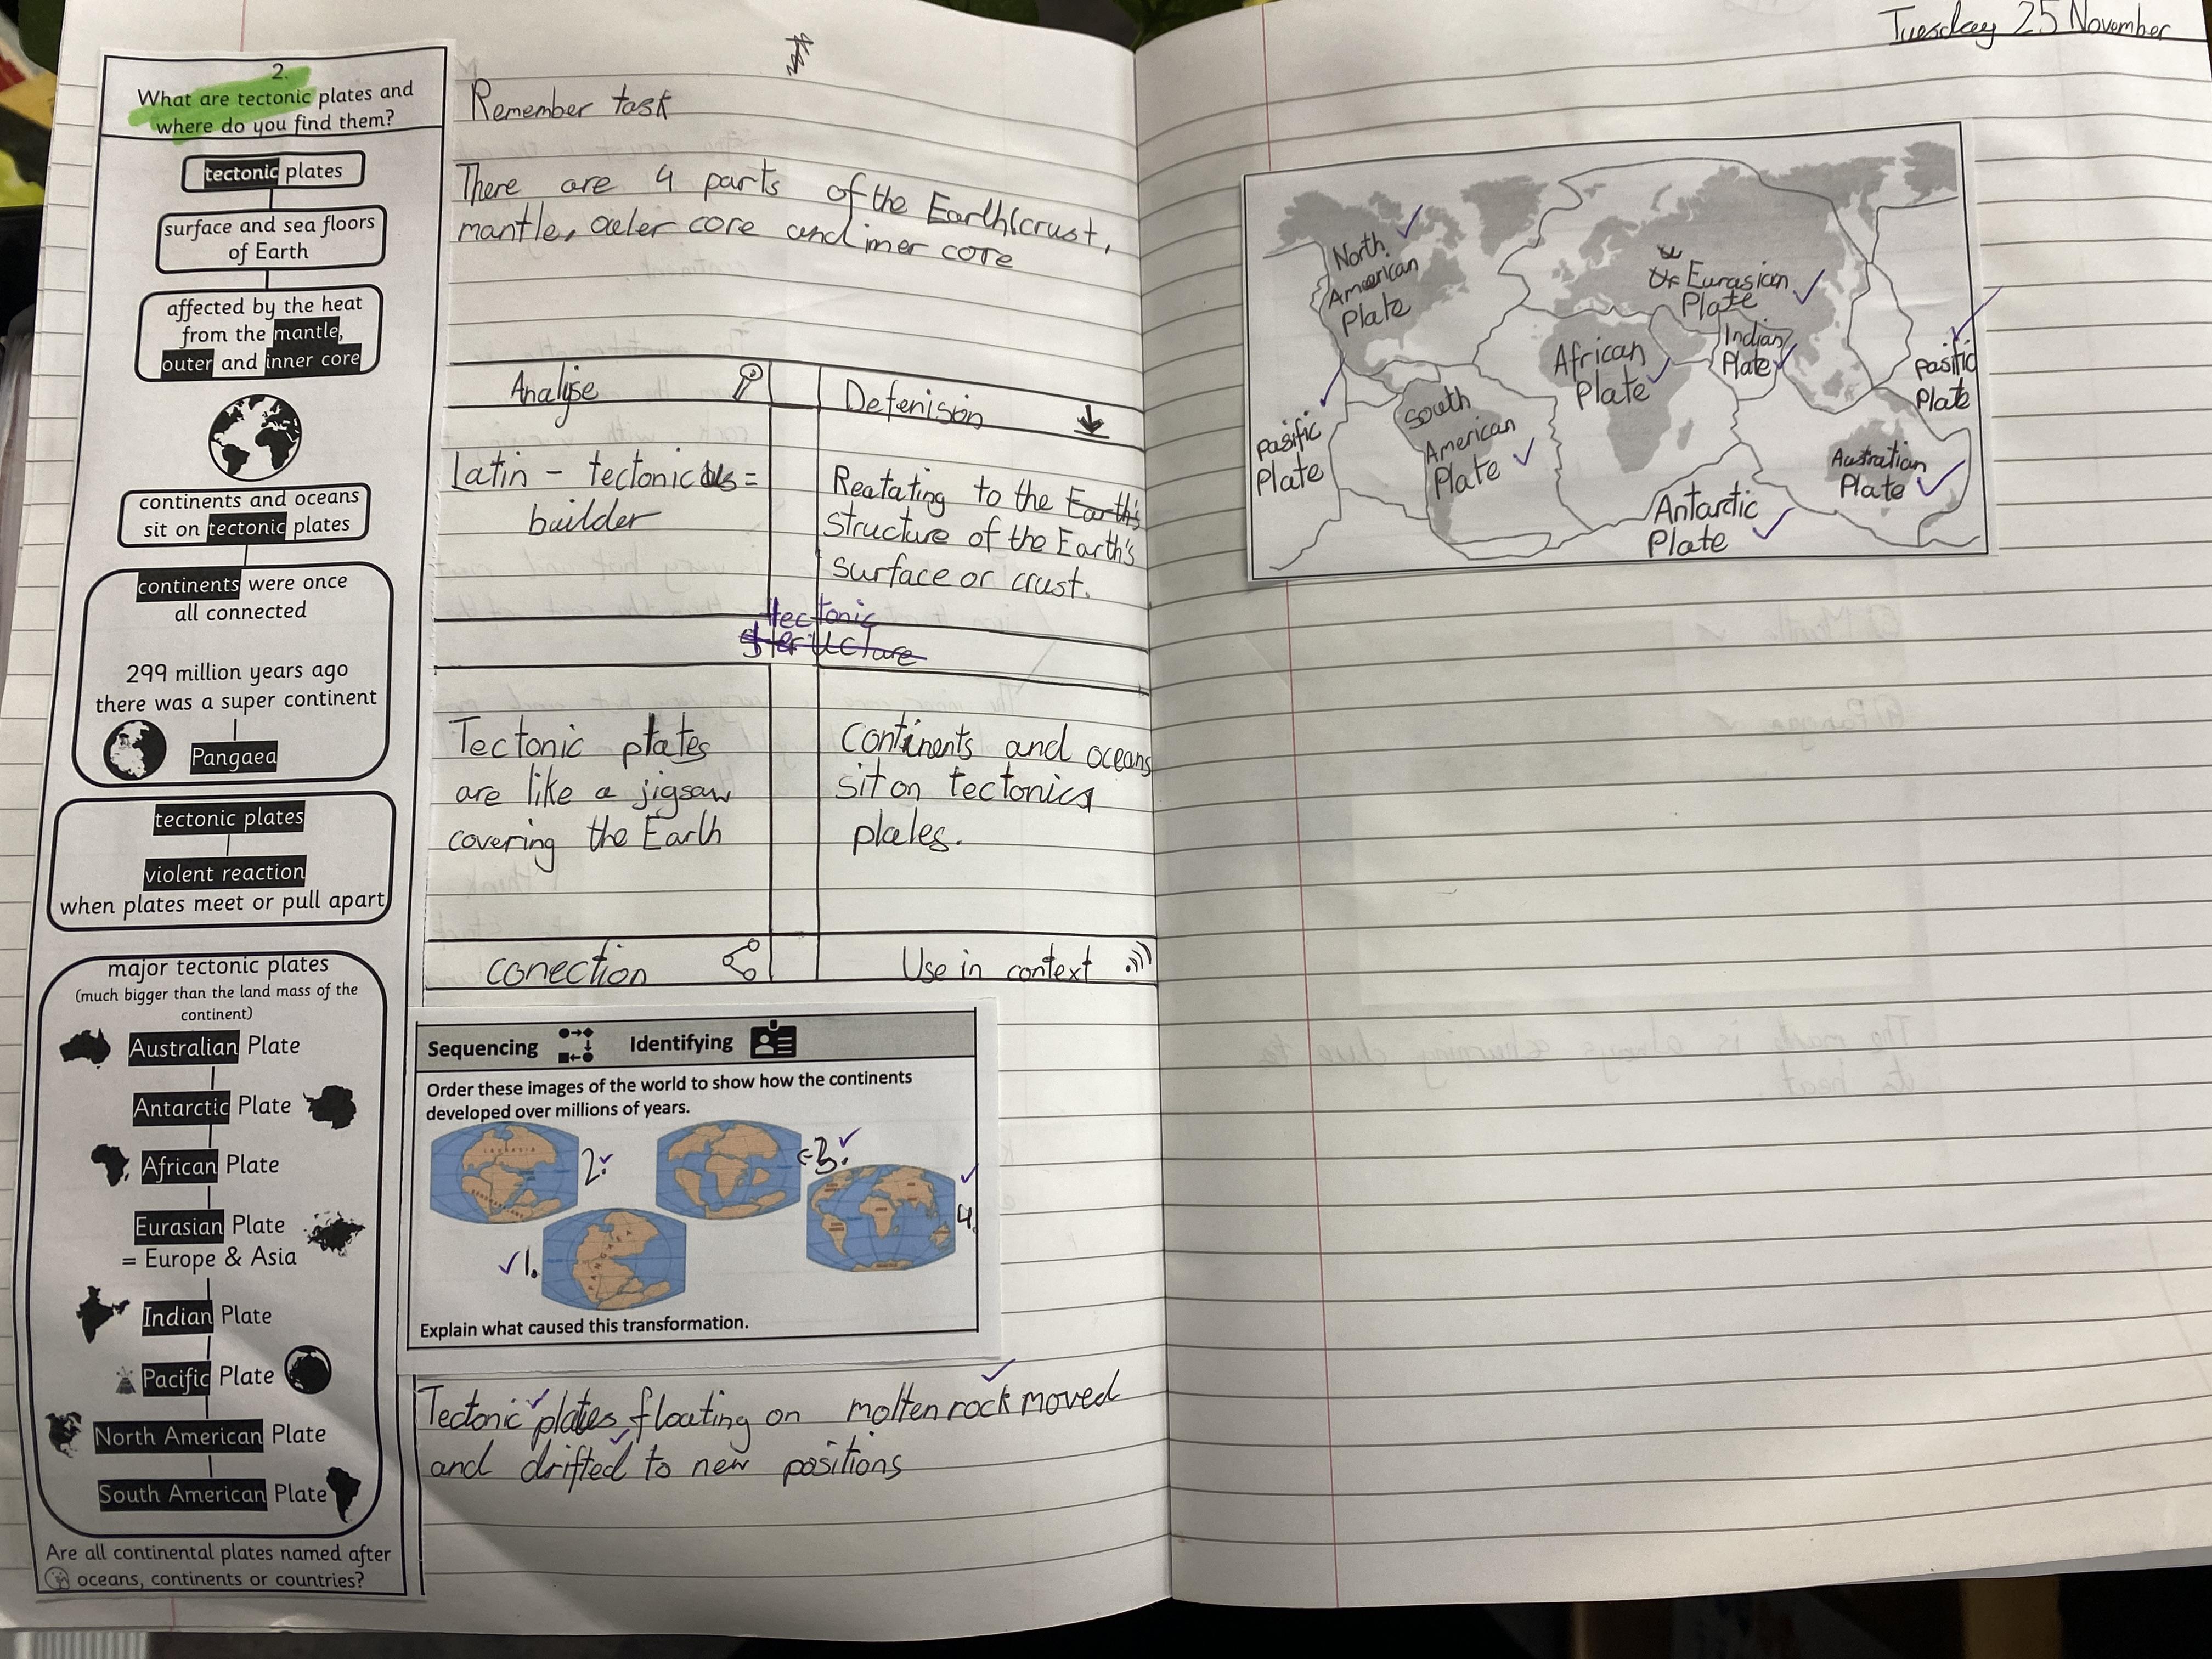 2.
What are tectonic plates and
where do you find them?
tectonic plates
surface and sea floors
of Earth
affected by the heat
from the mantle,
outer and inner core
continents and oceans
sit on tectonic plates
continents were once
all connected
299 million years ago
there was a super continent
Pangaea
tectonic plates
violent reaction
when plates meet or pull apart
major tectonic plates
(much bigger than the land mass of the
continent)
Australian Plate
Antarctic Plate
African Plate
Eurasian Plate
= Europe & Asia
Indian Plate
Pacific Plate
North American Plate
South American Plate
Are all continental plates named after
oceans, continents or countries?
Remember task
There are 4 parts of the Earth(crust,
mantle, outer core and iner core
Analyse
Defenision
Latin - tectonicus =
builder
Reatating to the Earth's
structure of the Earth's
surface or crust.
tectonic
Tectonic plates
are like a jigsaw
covering the Earth
Continents and oceans
sit on tectonic
plates.
conection
Use in context
Sequencing Identifying
Order these images of the world to show how the continents
developed over millions of years.
LAURASIA
2.
3.
4.
1.
PANGAEA
Explain what caused this transformation.
Tectonic plates floating on molten rock moved
and drifted to new positions
Tuesday 25 November
North
American
Plate
Eurasian
Plate
African
Plate
Indian
Plate
pasific
Plate
pasific
Plate
South
American
Plate
Australian
Plate
Antarctic
Plate